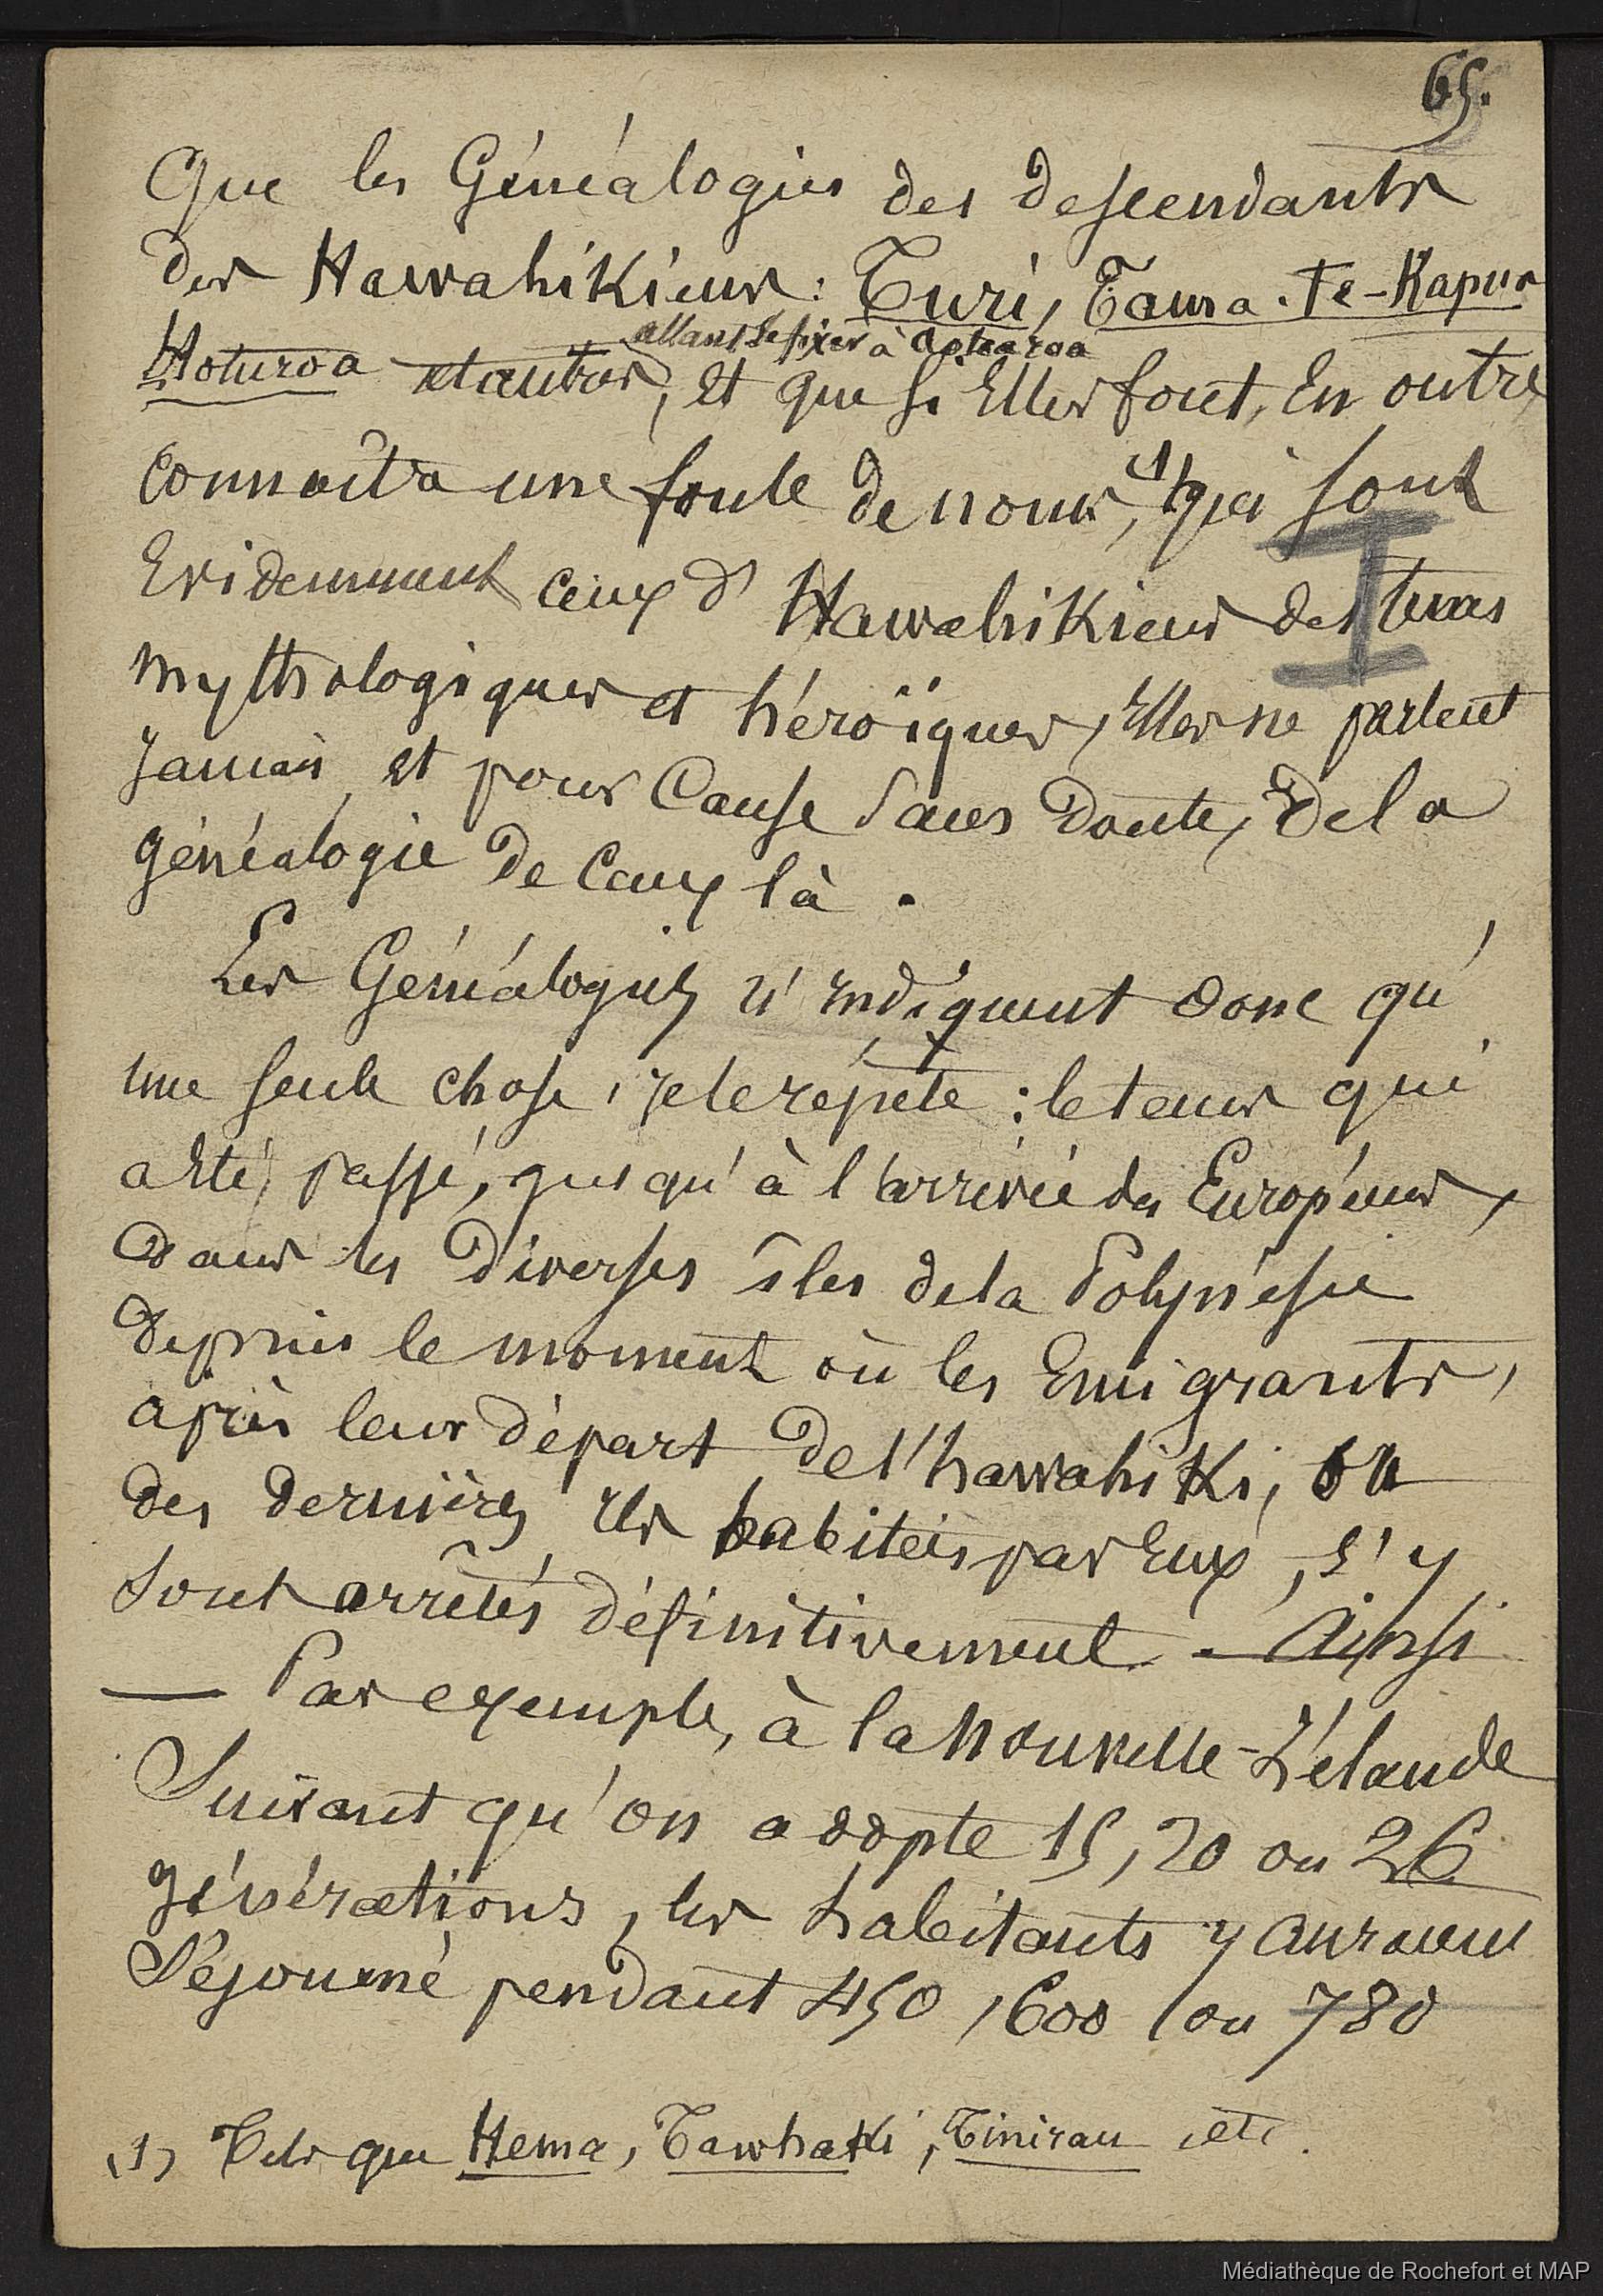 65.
Que les Généalogies des descendants
des Hawahikiens : Turi, Tama-Te-Kapua
allant se fixer à Aotearoa
Hoturoa et autres, et que si Elles font, En outre,
connaître une foule de noms, (1) qui sont
Evidemment ceux d'Hawahikiens des tems
mythologiques et héroïques, Elles ne parlent
Jamais, et pour Cause sans doute, de la
généalogie de Ceux là.
Les Généalogies n'indiquent donc qu'
une seule chose, je le répète : le tems qui
a Eté passé, jusqu'à l'arrivée des Européens,
dans les diverses îles de la Polynésie
depuis le moment où les Emigrants,
après leur départ de l'hawahiki, ou
des dernières îles habitées par Eux, s'y
sont arrêtés définitivement. Ainsi
— Par exemple, à la Nouvelle-Zélande
Suivant qu'on adopte 15, 20 ou 26
générations, les habitants y auraient
Séjourné pendant 450, 600 ou 780
(1) Tels que Hema, Tawhaki, Tinirau etc.
Médiathèque de Rochefort et MAP